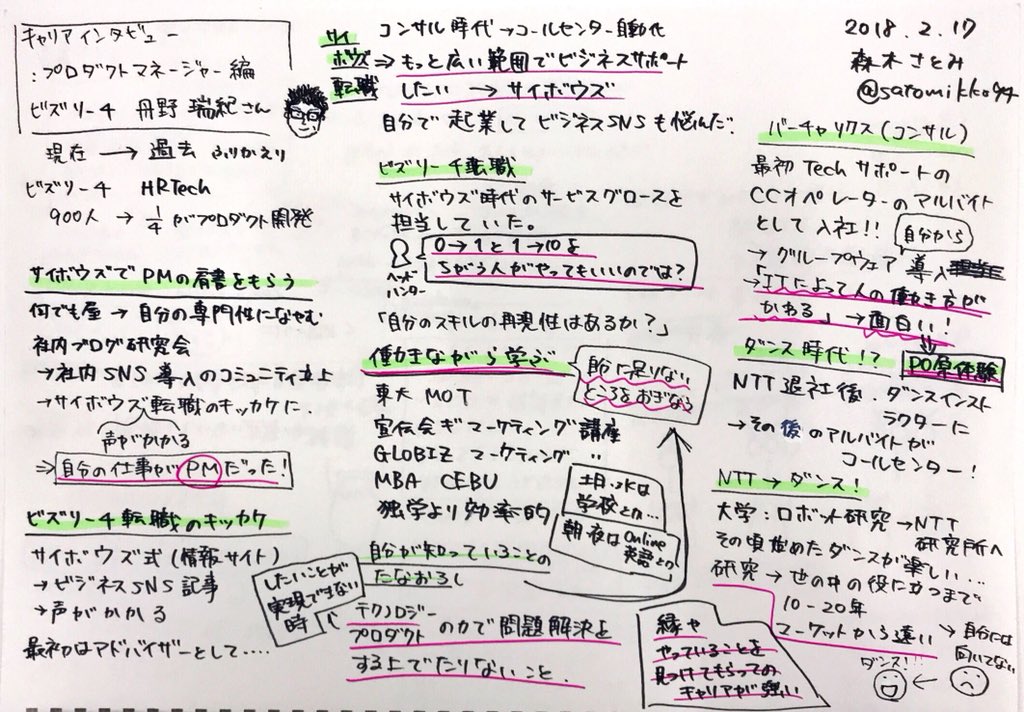 キャリアインタビュー
:プロダクトマネージャー編
ビズリーチ 丹野瑞紀さん
現在 → 過去 ふりかえり
ビズリーチ HRTech
900人 → 1/4がプロダクト開発
サイボウズでPMの肩書をもらう
何でも屋 → 自分の専門性になやむ
社内ブログ研究会
→社内SNS導入のコミュニティ立上
→サイボウズ転職のキッカケに
声がかかる
⇒自分の仕事がPMだった!
ビズリーチ転職のキッカケ
サイボウズ式(情報サイト)
→ビジネスSNS記事
→声がかかる
最初はアドバイザーとして....
サイボウズ転職
コンサル時代→コールセンター自動化
⇒もっと広い範囲でビジネスサポート
したい → サイボウズ
自分で起業してビジネスSNSも悩んだ.
ビズリーチ転職
サイボウズ時代のサービスグロースを
担当していた。
ヘッドハンター
0→1と1→10を
ちがう人がやってもいいのでは?
「自分のスキルの再現性はあるか?」
働きながら学ぶ
自分に足りない
ところをおぎなう
東大 MOT
宣伝会ギ マーケティング 講座
GLOBIZ マーケティング 〃
MBA CEBU
独学より効率的
土日・水は
学校とか...
朝夜はOnline
英語とか
自分が知っていることの
たなおろし
したいことが
実現できない
時
テクノロジー
プロダクト の力で問題解決を
する上でたりないこと.
縁や
やっていることを
見つけてもらっての
キャリアが強い
2018.2.17
森木さとみ
@satomikko94
バーチャリクス(コンサル)
最初Techサポートの
CCオペレーターのアルバイト
として入社!!
自分から
→ グループウェア導入
→「ITによって人の働き方が
かわる」→面白い!
PO原体験
ダンス時代!?
NTT退社後.ダンスインスト
ラクターに
→その後のアルバイトが
コールセンター!
NTT→ダンス!
大学:ロボット研究→NTT
研究所へ
その頃始めたダンスが楽しい...
研究 → 世の中の役に立つまで
10-20年
マーケットから遠い
→自分には
向いてない
ダンス!!